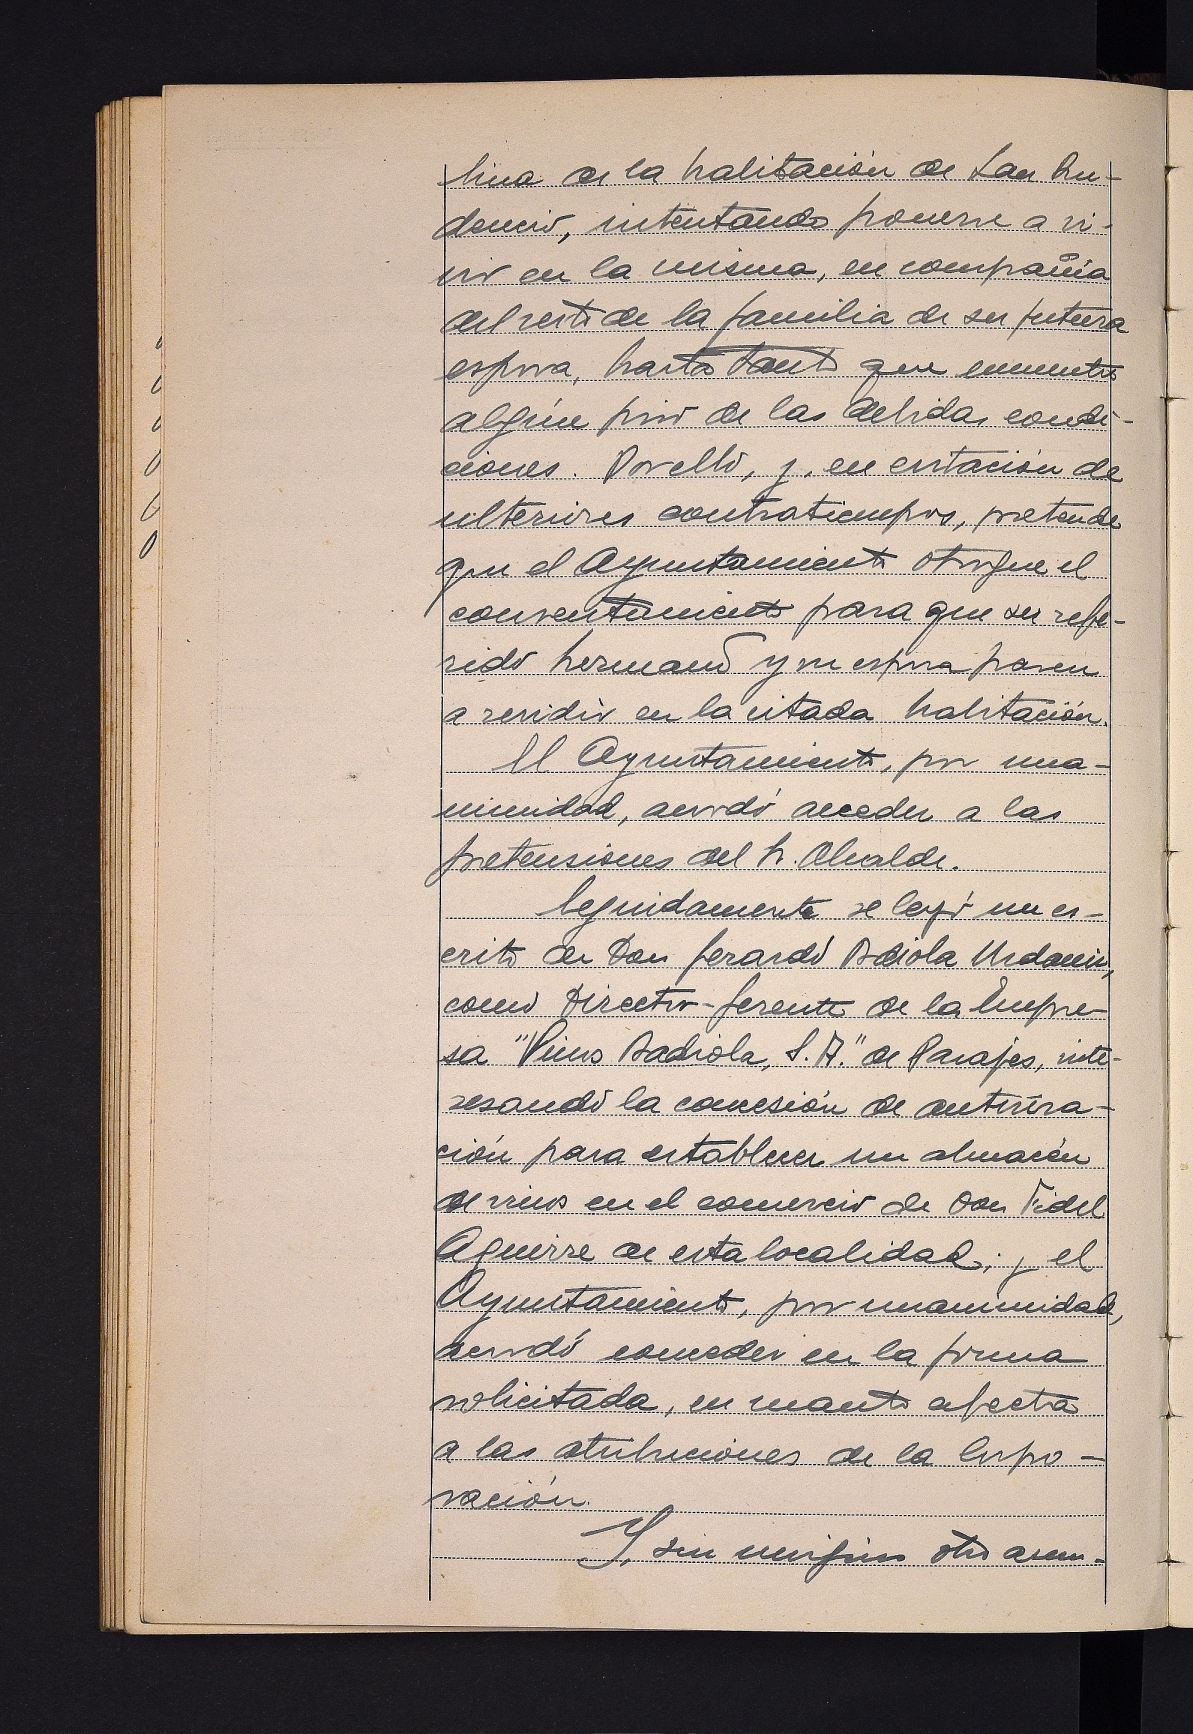 lina de la habitación de San Pru-
dencio, intentando ponerse a vi-
vir en la misma, en compañia
del resto de la familia de su futura
esposa, hasta tanto que encuentre
algún piso de las debidas condi-
ciones. Por ello, y, en evitación de
ulteriores contratiempos, pretende
que el Ayuntamiento otorgue el
consentimiento para que su refe-
rido hermano y su esposa pasen
a residir en la citada habitación.
El Ayuntamiento, por una-
nimidad, acordó acceder a las
pretensiones del Sr. Alcalde.
Seguidamente se leyó un es-
crito de Don Gerardo Badiola
como Director-Gerente de la Empre-
sa "Vinos Badiola, S.A." de Pasajes, inte-
resando la concesión de autoriza-
ción para establecer un almacén
de vinos en el comercio de Don Fidel
Aguirre de esta localidad; y el
Ayuntamiento, por unanimidad,
acordó conceder en la forma
solicitada, en cuanto afecta
a las atribuciones de la Corpo-
ración.
Y, sin ningún otro asun-